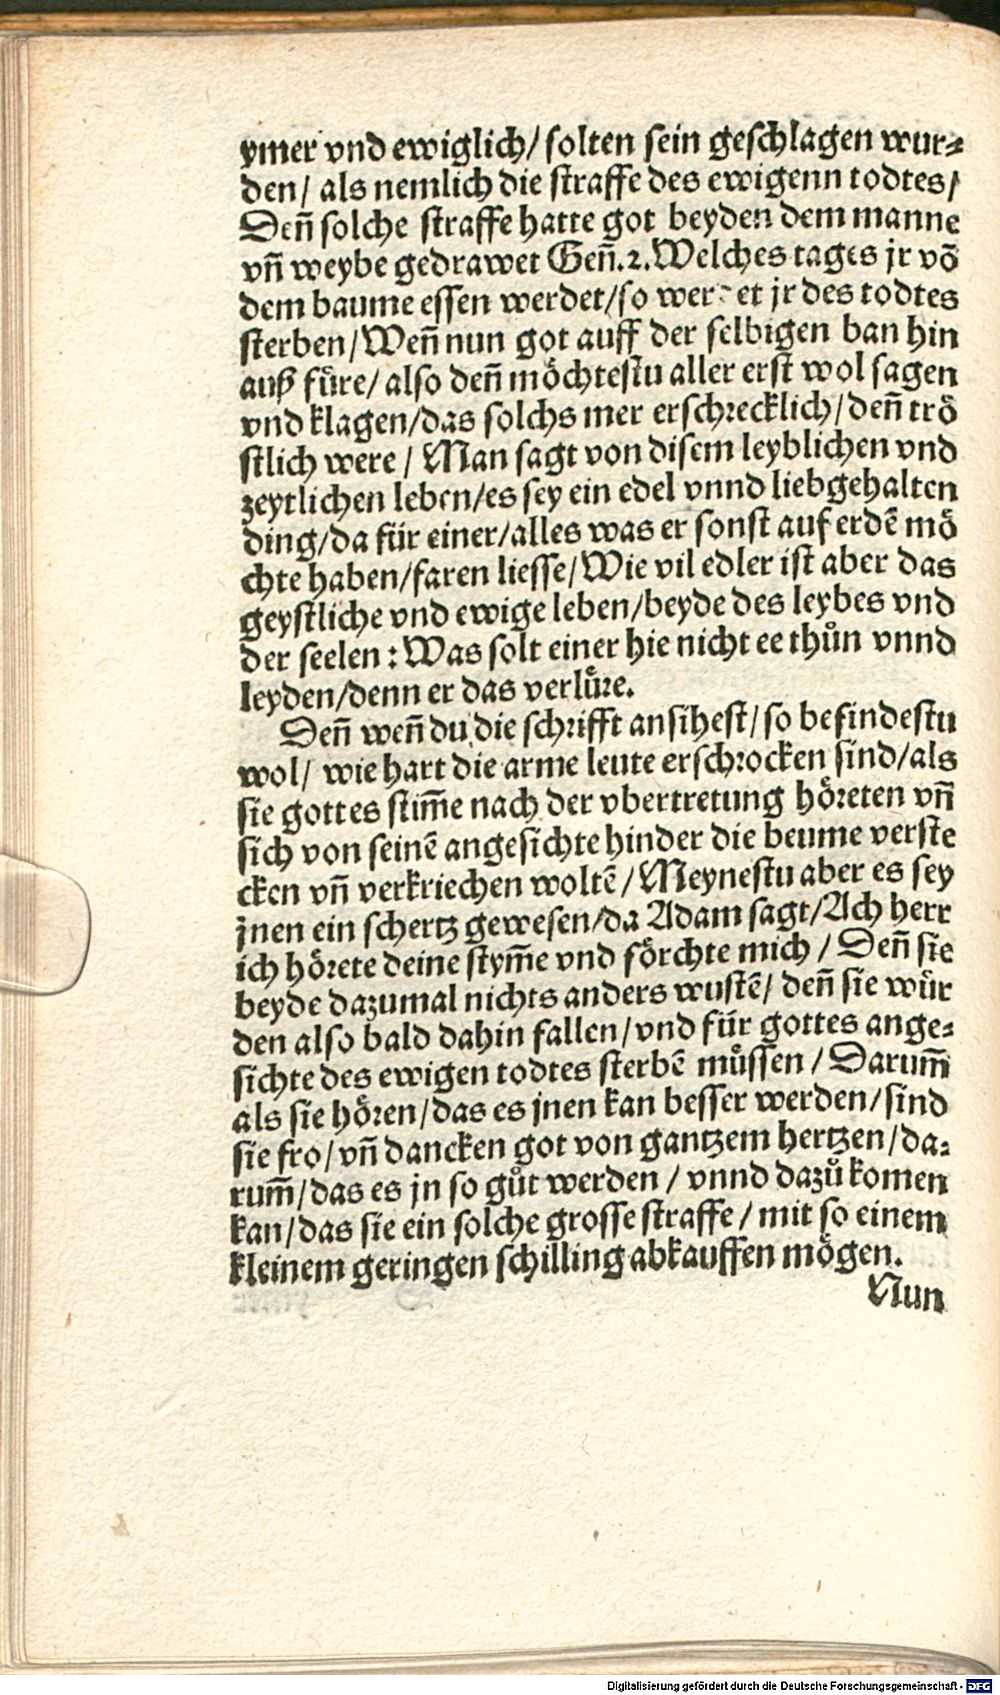 ymer vnd ewiglich/ solten sein geschlagen wur⸗
den/ als nemlich die straffe des ewigenn todtes/
Deñ solche straffe hatte got beyden dem manne
vñ weybe gedrawet Geñ.2. Welches tages jr võ
dem baume essen werdet/so wer et jr des todtes
sterben/Weñ nun got auff der selbigen ban hin
auß fůre/ also deñ möchtestu aller erst wol sagen
vnd klagen/das solchs mer erschrecklich/deñ trö
stlich were / Man sagt von disem leyblichen vnd
zeytlichen leben/es sey ein edel vnnd liebgehalten
ding/da für einer/alles was er sonst auf erdẽ mö
chte haben/faren liesse/Wie vil edler ist aber das
geystliche vnd ewige leben/beyde des leybes vnd
der seelen : Was solt einer hie nicht ee thůn vnnd
leyden/denn er das verlůre.
Deñ weñ du die schrifft ansihest/so befindestu
wol/ wie hart die arme leute erschrocken sind/als
sie gottes stim̃e nach der vbertretung höreten vñ
sich von seinẽ angesichte hinder die beume verste
cken vñ verkriechen woltẽ/Meynestu aber es sey
jnen ein schertz gewesen/da Adam sagt/Ach herr
ich hörete deine stym̃e vnd förchte mich / Deñ sie
beyde dazumal nichts anders wustẽ/ deñ sie wür
den also bald dahin fallen/vnd für gottes ange⸗
sichte des ewigen todtes sterbẽ můssen / Darum̃
als sie hören/das es jnen kan besser werden/sind
sie fro/vñ dancken got von gantzem hertzen/da⸗
rum̃/das es jn so gůt werden / vnnd dazů komen
kan/das sie ein solche grosse straffe / mit so einem
kleinem geringen schilling abkauffen mögen.
Nun
Digitalisierung gefördert durch die Deutsche Forschungsgemeinschaft - DFG